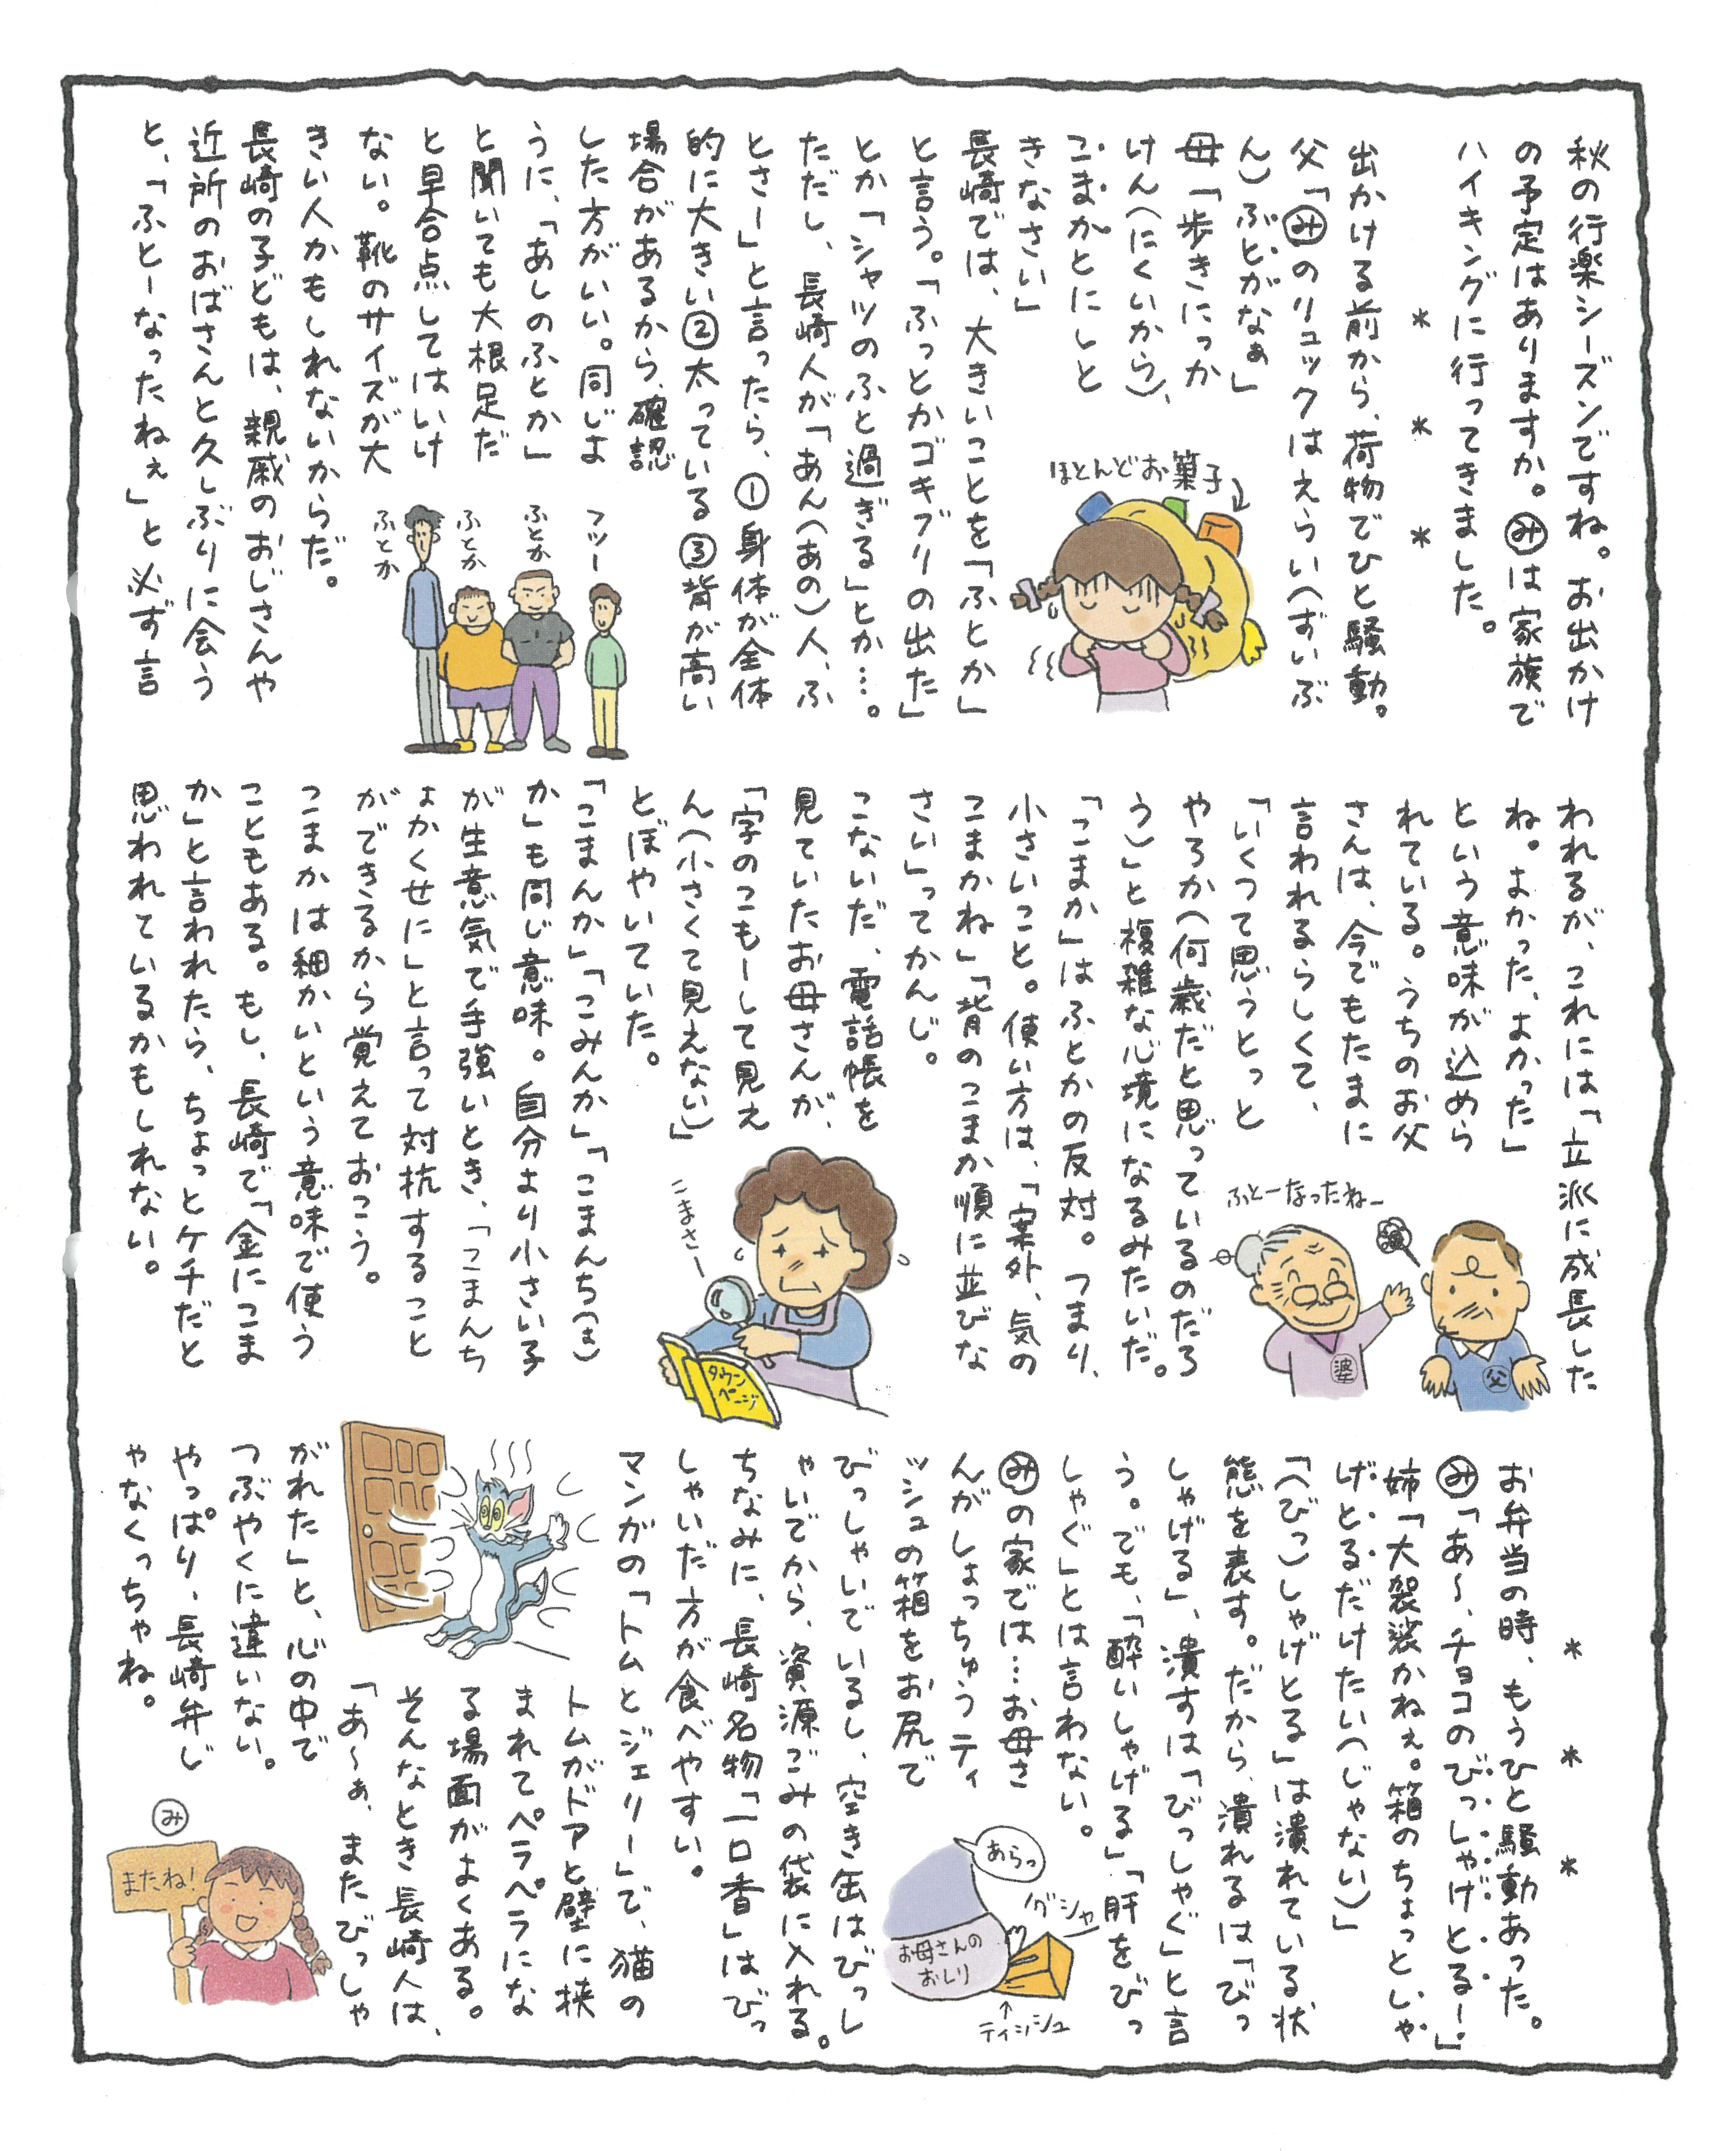 秋の行楽シーズンですね。お出かけ
の予定はありますか。みは家族で
ハイキングに行ってきました。
＊　＊　＊
出かける前から、荷物でひと騒動。
父「みのリュックはえらい（ずいぶ
ん）ぶとかなぁ」
母「歩きにっか
けん（にくいから）、
こまかとにしと
きなさい」
長崎では、大きいことを「ふとか」
と言う。「ふっとかゴキブリの出た」
とか「シャツのふと過ぎる」とか…。
ただし、長崎人が「あん（あの）人、ふ
とさー」と言ったら、①身体が全体
的に大きい②太っている③背が高い
場合があるから、確認
した方がいい。同じよ
うに、「あしのふとか」
と聞いても大根足だ
と早合点してはいけ
ない。靴のサイズが大
きい人かもしれないからだ。
長崎の子どもは、親戚のおじさんや
近所のおばさんと久しぶりに会う
と、「ふとーなったねぇ」と必ず言
ほとんどお菓子
フツー
ふとか
ふとか
ふとか
われるが、これには「立派に成長した
ね。よかった、よかった」
という意味が込めら
れている。うちのお父
さんは、今でもたまに
言われるらしくて、
「いくつて思うとっと
やろか（何歳だと思っているのだろ
う）」と複雑な心境になるみたいだ。
「こまか」はふとかの反対。つまり、
小さいこと。使い方は、「案外、気の
こまかね」「背のこまか順に並びな
さい」ってかんじ。
こないだ、電話帳を
見ていたお母さんが、
「字のこもーして見え
ん（小さくて見えない）」
とぼやいていた。
「こまんか」「こみんか」「こまんち（ょ）
か」も同じ意味。自分より小さい子
が生意気で手強いとき、「こまんち
ょかくせに」と言って対抗すること
ができるから覚えておこう。
こまかは細かいという意味で使う
こともある。もし、長崎で「金にこま
か」と言われたら、ちょっとケチだと
思われているかもしれない。
ふとーなったねー
婆
父
こまさー
タウン
ページ
＊　＊　＊
お弁当の時、もうひと騒動あった。
み「あ〜、チョコのびっしゃげとるー！」
姉「大袈裟かねぇ。箱のちょっとしゃ
げとるだけたい（じゃない）」
「（びっ）しゃげとる」は潰れている状
態を表す。だから、潰れるは「びっ
しゃげる」、潰すは「びっしゃぐ」と言
う。でも、「酔いしゃげる」「肝をびっ
しゃぐ」とは言わない。
みの家では…お母さ
んがしょっちゅうティ
ッシュの箱をお尻で
びっしゃいでいるし、空き缶はびっし
ゃいでから、資源ごみの袋に入れる。
ちなみに、長崎名物「一口香」はびっ
しゃいだ方が食べやすい。
マンガの「トムとジェリー」で、猫の
トムがドアと壁に挟
まれてペラペラにな
る場面がよくある。
そんなとき長崎人は、
「あ〜ぁ、またびっしゃ
がれた」と、心の中で
つぶやくに違いない。
やっぱり、長崎弁じ
ゃなくっちゃね。
あらっ
グシャ
お母さんの
おしり
ティシシュ
み
またね！